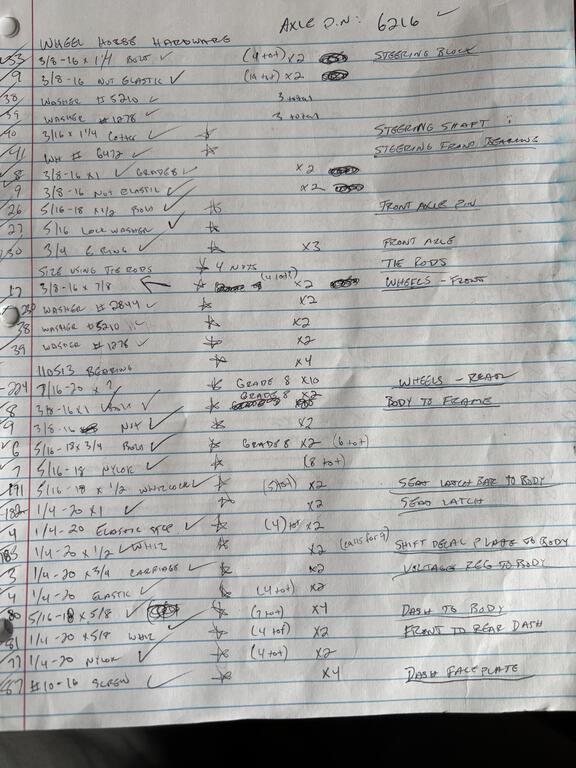 AXLE P.N: 6216 ✓
WHEEL HORSE HARDWARE
53 3/8-16 x 1 1/4 BOLT ✓ (4 tot) x2 STEERING BLOCK
9 3/8-16 NUT ELASTIC ✓ x2
38 WASHER # 5210 ✓ 3 total
39 WASHER # 1278 ✓ 3 total
40 3/16 x 1 1/4 COTTER ✓ ☆ STEERING SHAFT :
41 WH # 6472 ✓ ☆ STEERING FRONT BEARING
8 3/8-16 x 1 ✓ GRADE 8 ✓ x2
9 3/8-16 NUT ELASTIC ✓ x2
26 5/16-18 x 1/2 BOLT ✓ ☆ FRONT AXLE PIN
27 5/16 LOCK WASHER ✓ ☆
30 3/4 E RING ✓ ☆ x3 FRONT AXLE
SIZE USING TIE RODS ☆ 4 NUTS TIE RODS
17 3/8-16 x 7/8 ← ☆ (4 tot) x2 WHEELS - FRONT
WASHER # 2844 ✓ ☆ x2
38 WASHER #5210 ✓ ☆ x2
39 WASHER # 1278 ✓ ☆ x2
110513 BEARING ☆ x4
224 7/16-20 x ? ☆ GRADE 8 x10 WHEELS - REAR
8 3/8-16 x 1 BOLTS ✓ ☆ GRADE 8 x2 BODY TO FRAME
9 3/8-16 NUT ✓ ☆ x2
6 5/16-18 x 3/4 BOLT ✓ ☆ GRADE 8 x2 (6 tot)
7 5/16-18 NYLOK ✓ ☆ (8 tot)
191 5/16-18 x 1/2 WHIZLOCK ✓ ☆ (5 tot) x2 SEAT LATCH BAR TO BODY
182 1/4-20 x 1 ✓ ☆ x2 SEAT LATCH
4 1/4-20 ELASTIC STOP ✓ ☆ (4) tot x2
183 1/4-20 x 1/2 ✓ WHIZ ☆ x2 (calls for 9) SHIFT DECAL PLATE TO BODY
3 1/4-20 x 3/4 CARRIAGE ✓ ☆ x2 VOLTAGE REG TO BODY
4 1/4-20 ELASTIC ✓ ☆ (4 tot) x2
80 5/16-18 x 5/8 ✓ ☆ (7 tot) x4 DASH TO BODY
81 1/4-20 x 5/8 WHIZ ✓ ☆ (4 tot) x2 FRONT TO REAR DASH
77 1/4-20 NYLOK ✓ ☆ (4 tot) x2
87 #10-16 SCREW ✓ ☆ x4 DASH FACE PLATE